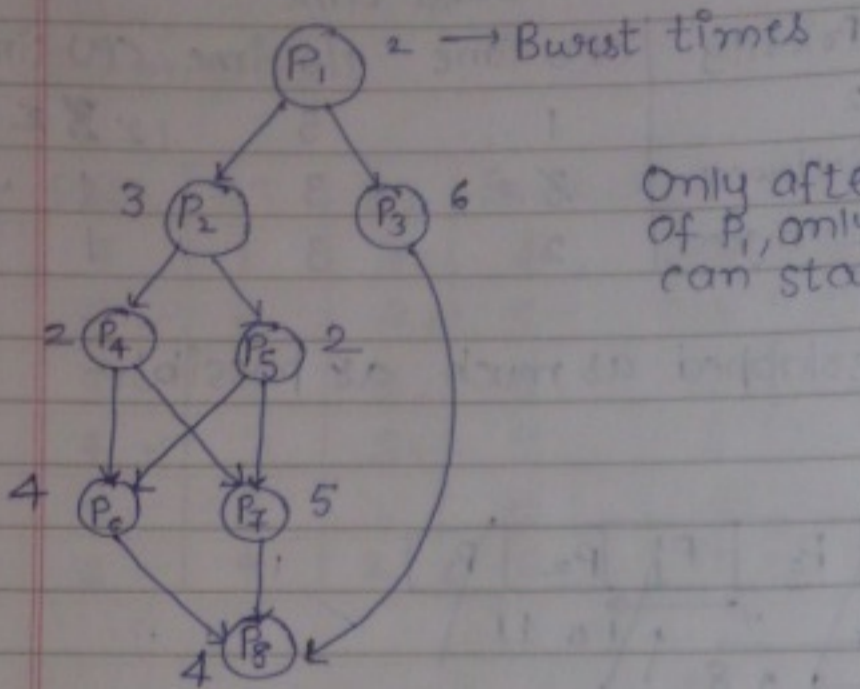 P1 2 → Burst times
3 P2 P3 6
Only
of P1,
can
2 P4 P5 2
4 P6 P7 5
4 P8